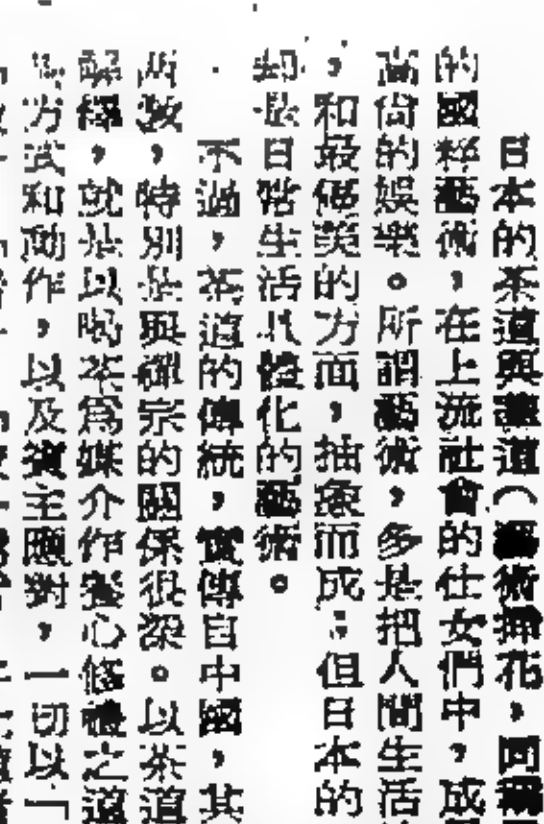 日本的茶道與華道(藝術插花,同爲
的國粹藝術,在上流社會的仕女們中,成
高尙的娛樂。所謂藝術,多是把人間生活
,和最優美的方面,抽象而成;但日本的
却是日常生活具體化的藝術。
不過,茶道的傳統,實傳自中國,其
所敎,特別是與禪宗的關係很深。以茶道
解釋,就是以喝茶爲媒介作養心修禮之道
方式和動作,以及賓主應對,一切以「